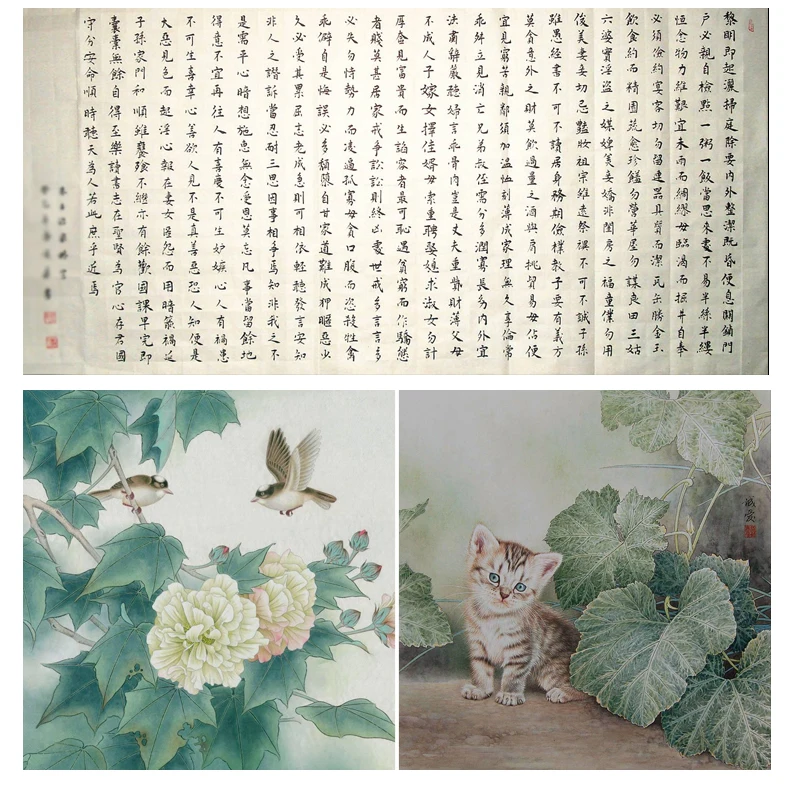 黎明即起灑掃庭除要内外整潔既昏便息關鎖門
户必親自檢點一粥一飯當思來處不易半絲半縷
恒念物力維艱宜未雨而綢繆毋臨渴而掘井自奉
必須儉約宴客切勿留連器具質而潔瓦缶勝金玉
飲食約而精園蔬愈珍饈勿營華屋勿謀良田三姑
六婆實淫盗之媒婢美妾嬌非閨房之福童僕勿用
俊美妻妾切忌豔妝祖宗雖遠祭禩不可不誠子孫
雖愚經書不可不讀居身務期儉樸教子要有義方
莫貪意外之財莫飲過量之酒與肩挑貿易毋佔便
宜見窮苦親鄰須加温恤刻薄成家理無久享倫常
乖舛立見消亡兄弟叔侄需分多潤寡長幼内外宜
法肅辭嚴聽婦言乖骨肉豈是丈夫重貲財薄父母
不成人子嫁女擇佳婿毋索重聘娶媳求淑女勿計
厚奩見富貴而生諂容者最可恥遇貧窮而作驕態
者賤莫甚居家戒爭訟訟則終凶處世戒多言言多
必失勿恃勢力而凌逼孤寡毋貪口腹而恣殺牲禽
乖僻自是悔誤必多頹隳自甘家道難成狎暱惡少
久必受其累屈志老成急則可相依輕聽發言安知
非人之譖訴當忍耐三思因事相爭焉知非我之不
是需平心暗想施惠無念受恩莫忘凡事當留餘地
得意不宜再往人有喜慶不可生妒嫉心人有禍患
不可生喜幸心善欲人見不是真善惡恐人知便是
大惡見色而起淫心報在妻女匿怨而用暗箭禍延
子孫家門和順雖饔飧不繼亦有餘歡國課早完即
囊橐無餘自得至樂讀書志在聖賢為官心存君國
守分安命順時聽天為人若此庶乎近焉